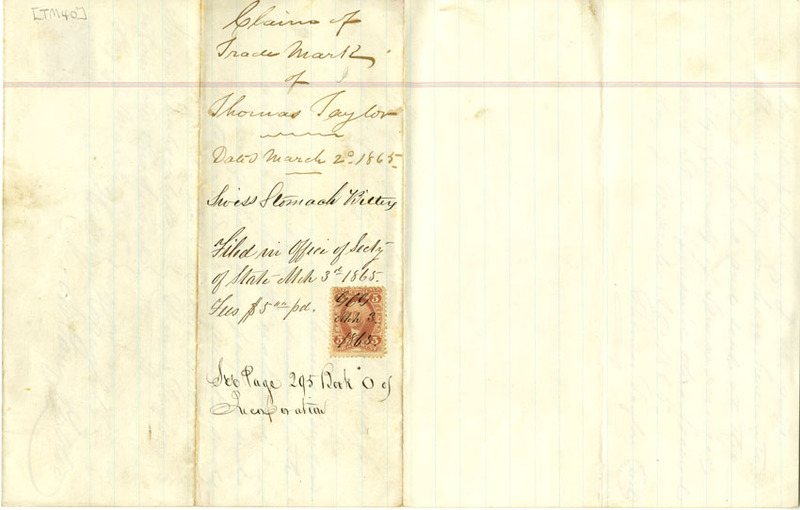 [TM40]
Claim of
Trade Mark
of
Thomas Taylor
Dated March 2d 1865
Swiss Stomach Bitters
Filed in Office of Secty
of State Mch 3d 1865.
Fees $5 00 pd.
5
Mch 3.
1865.
5 5
See Page 295 Book "O of
Incorporation